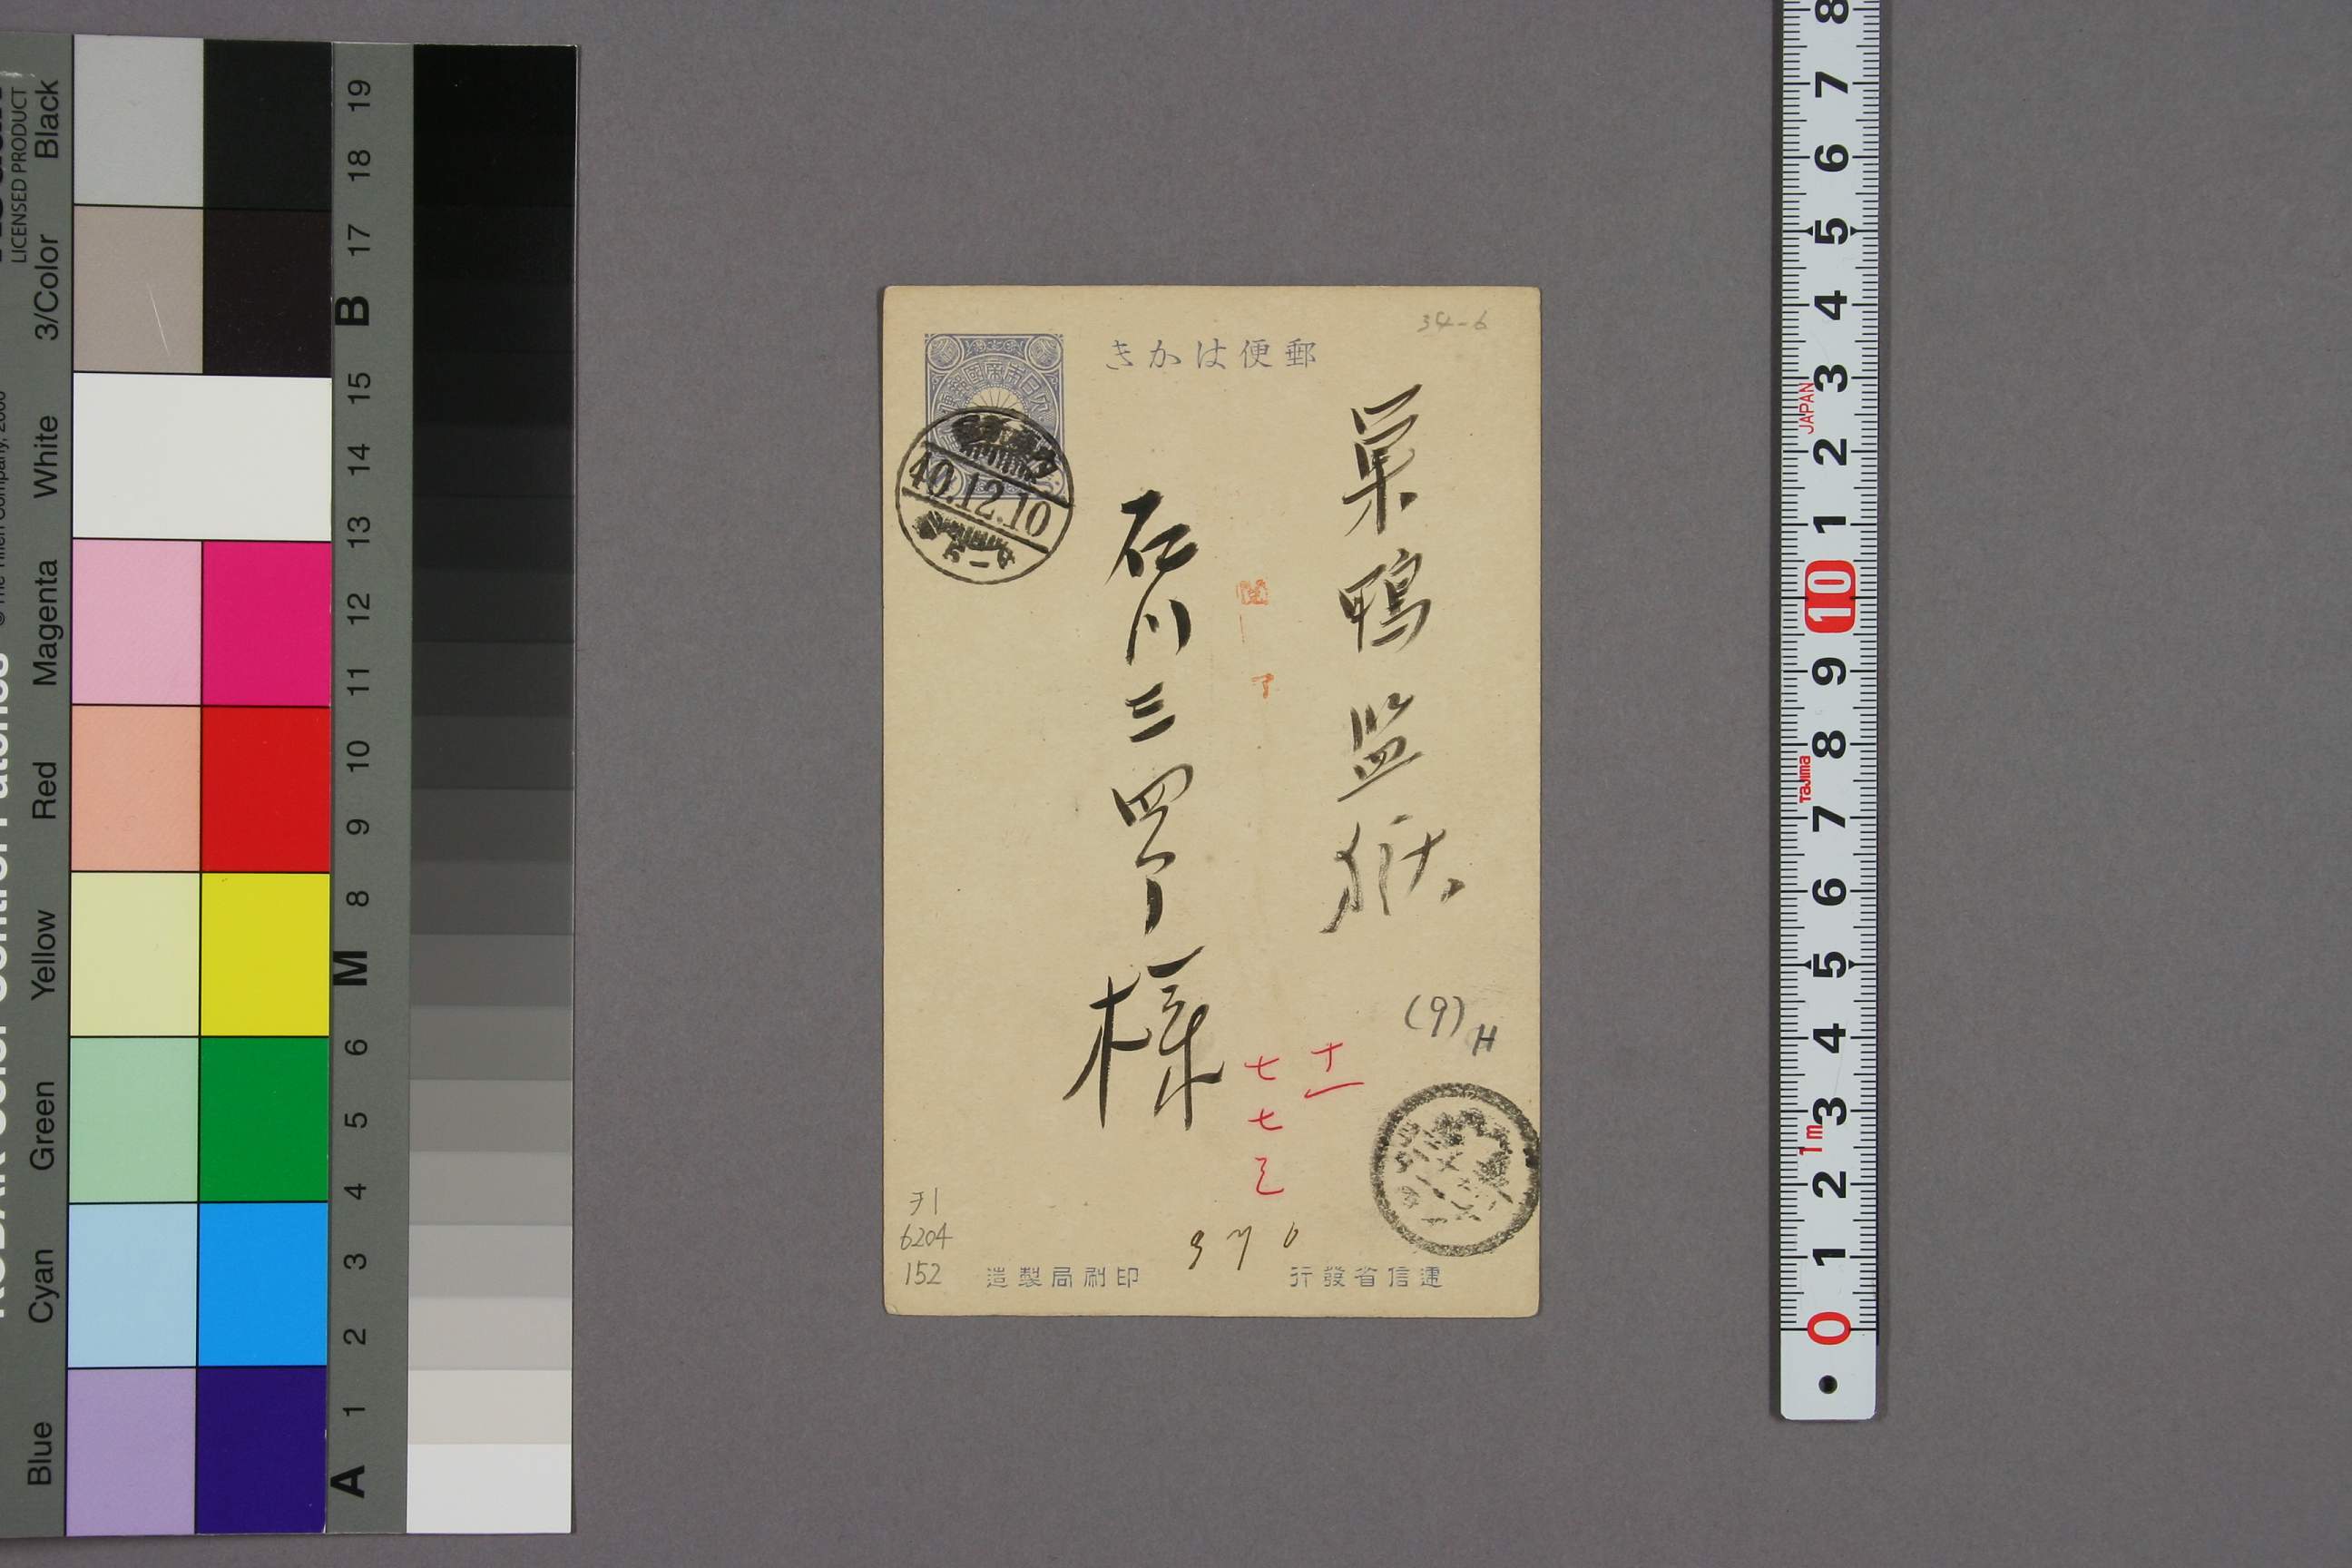 郵便はかき
34-6
巣鴨監獄
石川三四郎様
40.12.10
了
(9)
H
十一
七七
3761
6204
152
逓信省發行
印刷局製造
LICENSED PRODUCT
Black
3/Color
White
Magenta
Red
Yellow
Green
Cyan
Blue
19
18
17
B
15
14
13
12
11
10
9
8
M
6
5
4
3
2
1
A
8
7
6
5
4
3
JAPAN
2
1
10
9
8
Tajima
7
6
5
4
3
1m
2
1
0